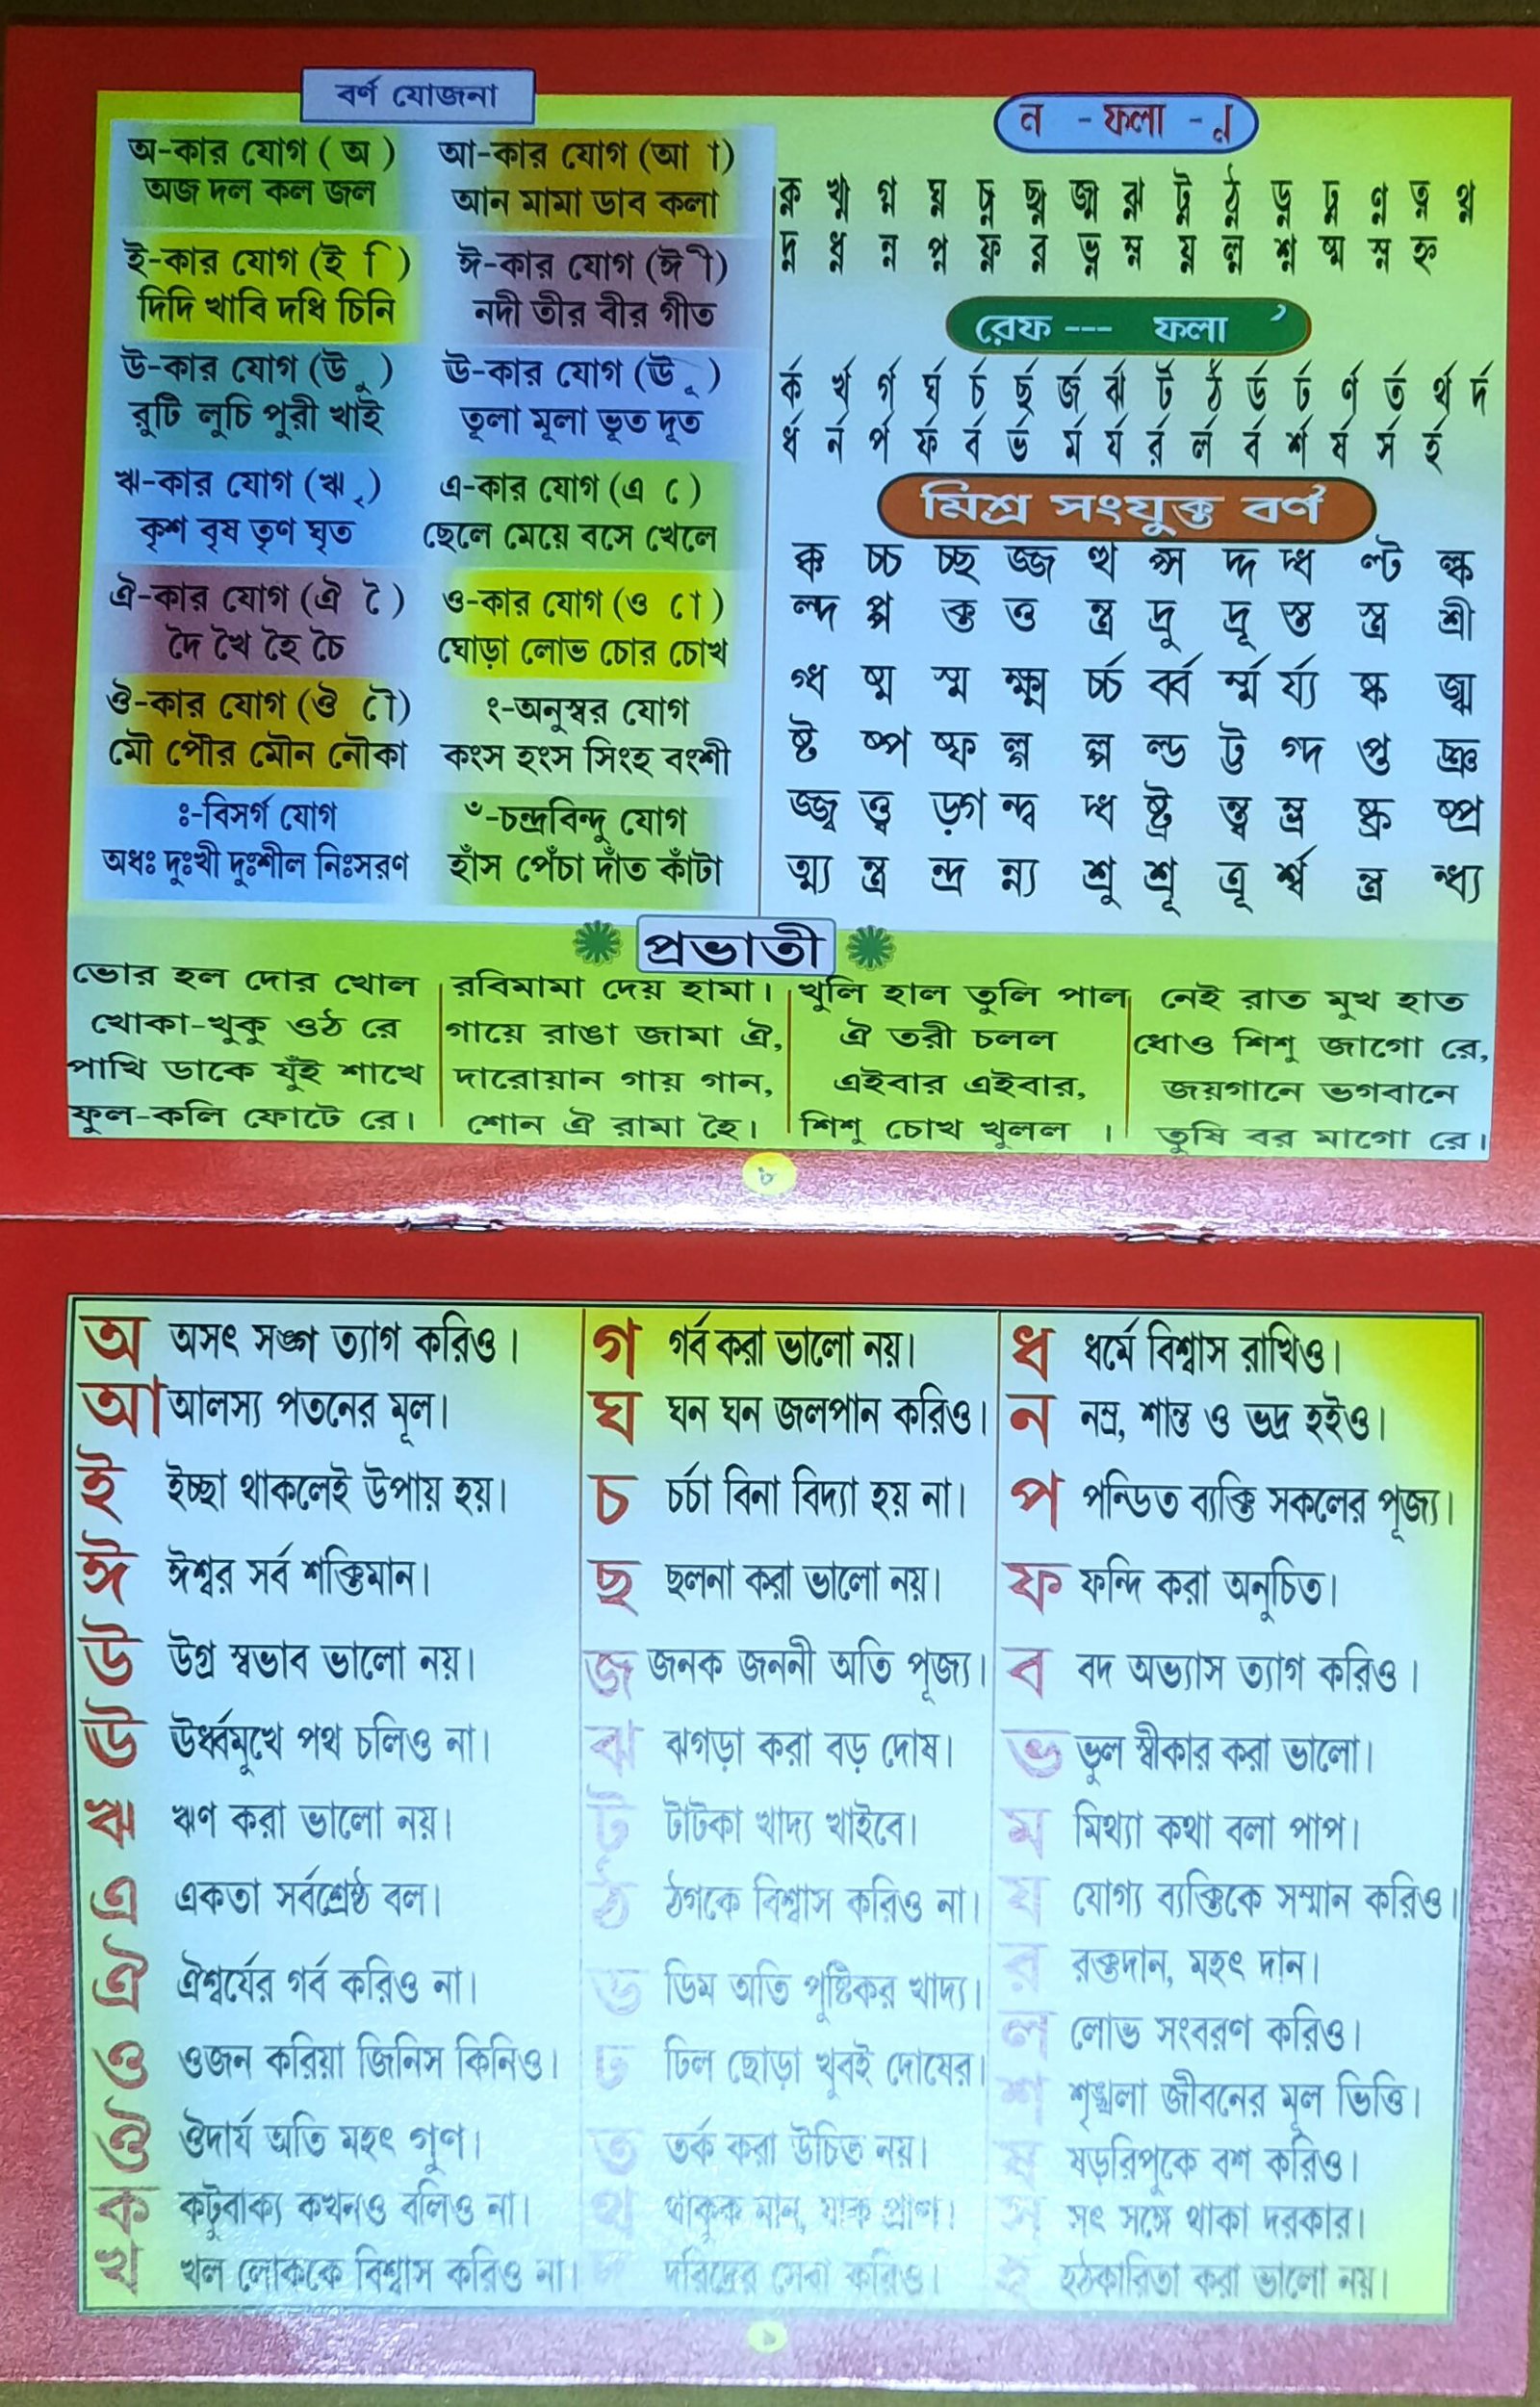 বর্ণ যোজনা
অ-কার যোগ ( অ )
অজ দল কল জল
আ-কার যোগ (আ া)
আন মামা ডাব কলা
ই-কার যোগ (ই ি)
দিদি খাবি দধি চিনি
ঈ-কার যোগ (ঈ ী)
নদী তীর বীর গীত
উ-কার যোগ (উ ু)
রুটি লুচি পুরী খাই
ঊ-কার যোগ (ঊ ূ)
তূলা মূলা ভূত দূত
ঋ-কার যোগ (ঋ ৃ)
কৃশ বৃষ তৃণ ঘৃত
এ-কার যোগ (এ ে)
ছেলে মেয়ে বসে খেলে
ঐ-কার যোগ (ঐ ৈ)
দৈ খৈ হৈ চৈ
ও-কার যোগ (ও ো)
ঘোড়া লোভ চোর চোখ
ঔ-কার যোগ (ঔ ৌ)
মৌ পৌর মৌন নৌকা
ং-অনুস্বর যোগ
কংস হংস সিংহ বংশী
ঃ-বিসর্গ যোগ
অধঃ দুঃখী দুঃশীল নিঃসরণ
ঁ-চন্দ্রবিন্দু যোগ
হাঁস পেঁচা দাঁত কাঁটা
ন - ফলা - ্ন
ক্ন খ্ন গ্ন ঘ্ন চ্ন ছ্ন জ্ন ঝ্ন ট্ন ঠ্ন ড্ন ঢ্ন ণ্ন ত্ন থ্ন
দ্ন ধ্ন ন্ন প্ন ফ্ন ব্ন ভ্ন ম্ন য্ন ল্ন শ্ন ষ্ণ স্ন হ্ন
রেফ --- ফলা র্
র্ক র্খ র্গ র্ঘ র্চ র্ছ র্জ র্ঝ র্ট র্ঠ র্ড র্ঢ র্ণ র্ত র্থ র্দ
র্ধ র্ন র্প র্ফ র্ব র্ভ র্ম র্য র্র র্ল র্ব র্শ র্ষ র্স র্হ
মিশ্র সংযুক্ত বর্ণ
ক্ক চ্চ চ্ছ জ্জ ত্থ প্স দ্দ দ্ধ ল্ট ল্ক
ল্দ প্প ক্ত ত্ত ন্ত্র দ্রু দ্রূ স্ত স্ত্র শ্রী
গ্ধ ষ্ম স্ম ক্ষ্ম র্চ্চ র্ব্ব র্ম্ম র্য্য ষ্ক
ষ্ট ষ্প ষ্ফ ল্গ ল্প ল্ড ট্ট গ্দ প্ত
জ্জ্ব ত্ত্ব ড়্গ ন্দ্ব দ্ধ ষ্ট্র ন্ত্ব ম্ভ্র ষ্ক্র ষ্প্র
ত্ম্য ন্ত্র ন্দ্র ন্ন্য শ্রু শ্রূ ত্রূ র্শ্ব ন্ত্র ন্ধ্য
প্রভাতী
ভোর হল দোর খোল
খোকা-খুকু ওঠ রে
পাখি ডাকে যুঁই শাখে
ফুল-কলি ফোটে রে।
রবিমামা দেয় হামা।
গায়ে রাঙা জামা ঐ,
দারোয়ান গায় গান,
শোন ঐ রামা হৈ।
খুলি হাল তুলি পাল
ঐ তরী চলল
এইবার এইবার,
শিশু চোখ খুলল ।
নেই রাত মুখ হাত
ধোও শিশু জাগো রে,
জয়গানে ভগবানে
তুষি বর মাগো রে।
৮
অ অসৎ সঙ্গ ত্যাগ করিও।
আ আলস্য পতনের মূল।
ই ইচ্ছা থাকলেই উপায় হয়।
ঈ ঈশ্বর সর্ব শক্তিমান।
উ উগ্র স্বভাব ভালো নয়।
ঊ ঊর্ধ্বমুখে পথ চলিও না।
ঋ ঋণ করা ভালো নয়।
এ একতা সর্বশ্রেষ্ঠ বল।
ঐ ঐশ্বর্যের গর্ব করিও না।
ও ওজন করিয়া জিনিস কিনিও।
ঔ ঔদার্য অতি মহৎ গুণ।
ক কটুবাক্য কখনও বলিও না।
খ খল লোককে বিশ্বাস করিও না।
গ গর্ব করা ভালো নয়।
ঘ ঘন ঘন জলপান করিও।
চ চর্চা বিনা বিদ্যা হয় না।
ছ ছলনা করা ভালো নয়।
জ জনক জননী অতি পূজ্য।
ঝ ঝগড়া করা বড় দোষ।
ট টাটকা খাদ্য খাইবে।
ঠ ঠগকে বিশ্বাস করিও না।
ড ডিম অতি পুষ্টিকর খাদ্য।
ঢ ঢিল ছোড়া খুবই দোষের।
ত তর্ক করা উচিত নয়।
থ থাকুক মান, যাক প্রাণ।
দ দরিদ্রের সেবা করিও।
ধ ধর্মে বিশ্বাস রাখিও।
ন নম্র, শান্ত ও ভদ্র হইও।
প পন্ডিত ব্যক্তি সকলের পূজ্য।
ফ ফন্দি করা অনুচিত।
ব বদ অভ্যাস ত্যাগ করিও।
ভ ভুল স্বীকার করা ভালো।
ম মিথ্যা কথা বলা পাপ।
য যোগ্য ব্যক্তিকে সম্মান করিও।
র রক্তদান, মহৎ দান।
ল লোভ সংবরণ করিও।
শ শৃঙ্খলা জীবনের মূল ভিত্তি।
ষ ষড়রিপুকে বশ করিও।
স সৎ সঙ্গে থাকা দরকার।
হ হঠকারিতা করা ভালো নয়।
৯